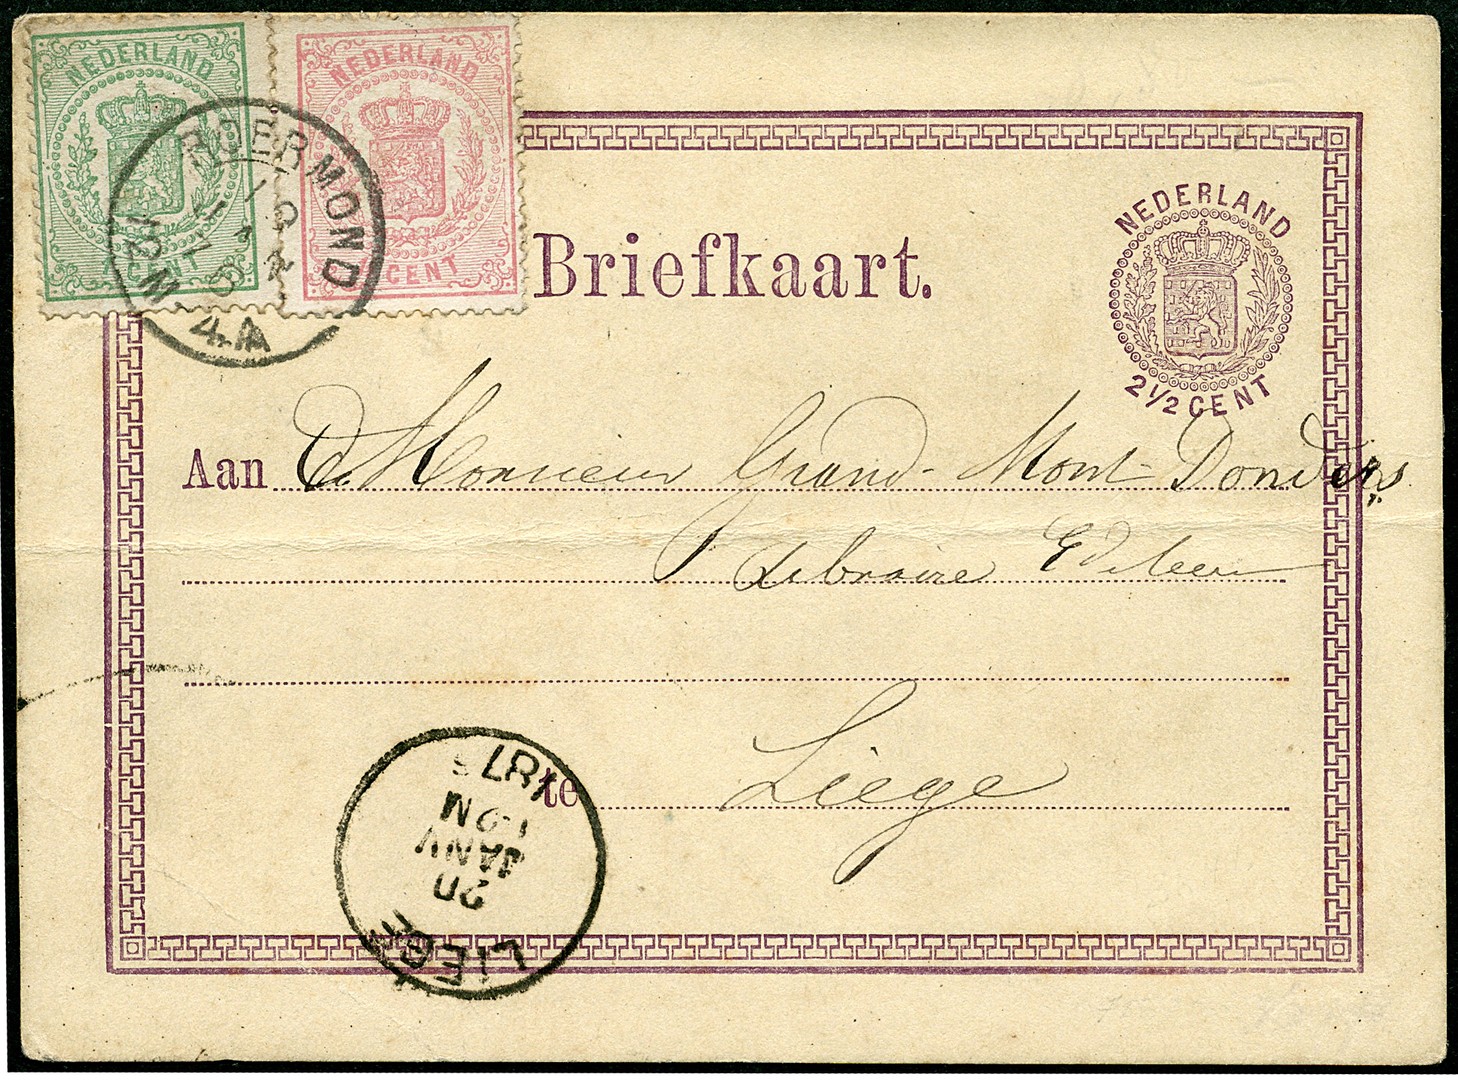 NEDERLAND
1 CENT
NEDERLAND
CENT
ROERMOND
12M-4A
Briefkaart.
NEDERLAND
2½ CENT
Aan Monsieur Grand-Mont-Donders
Libraire Editeur
te Liége
LIEGE
20
JANV
1875